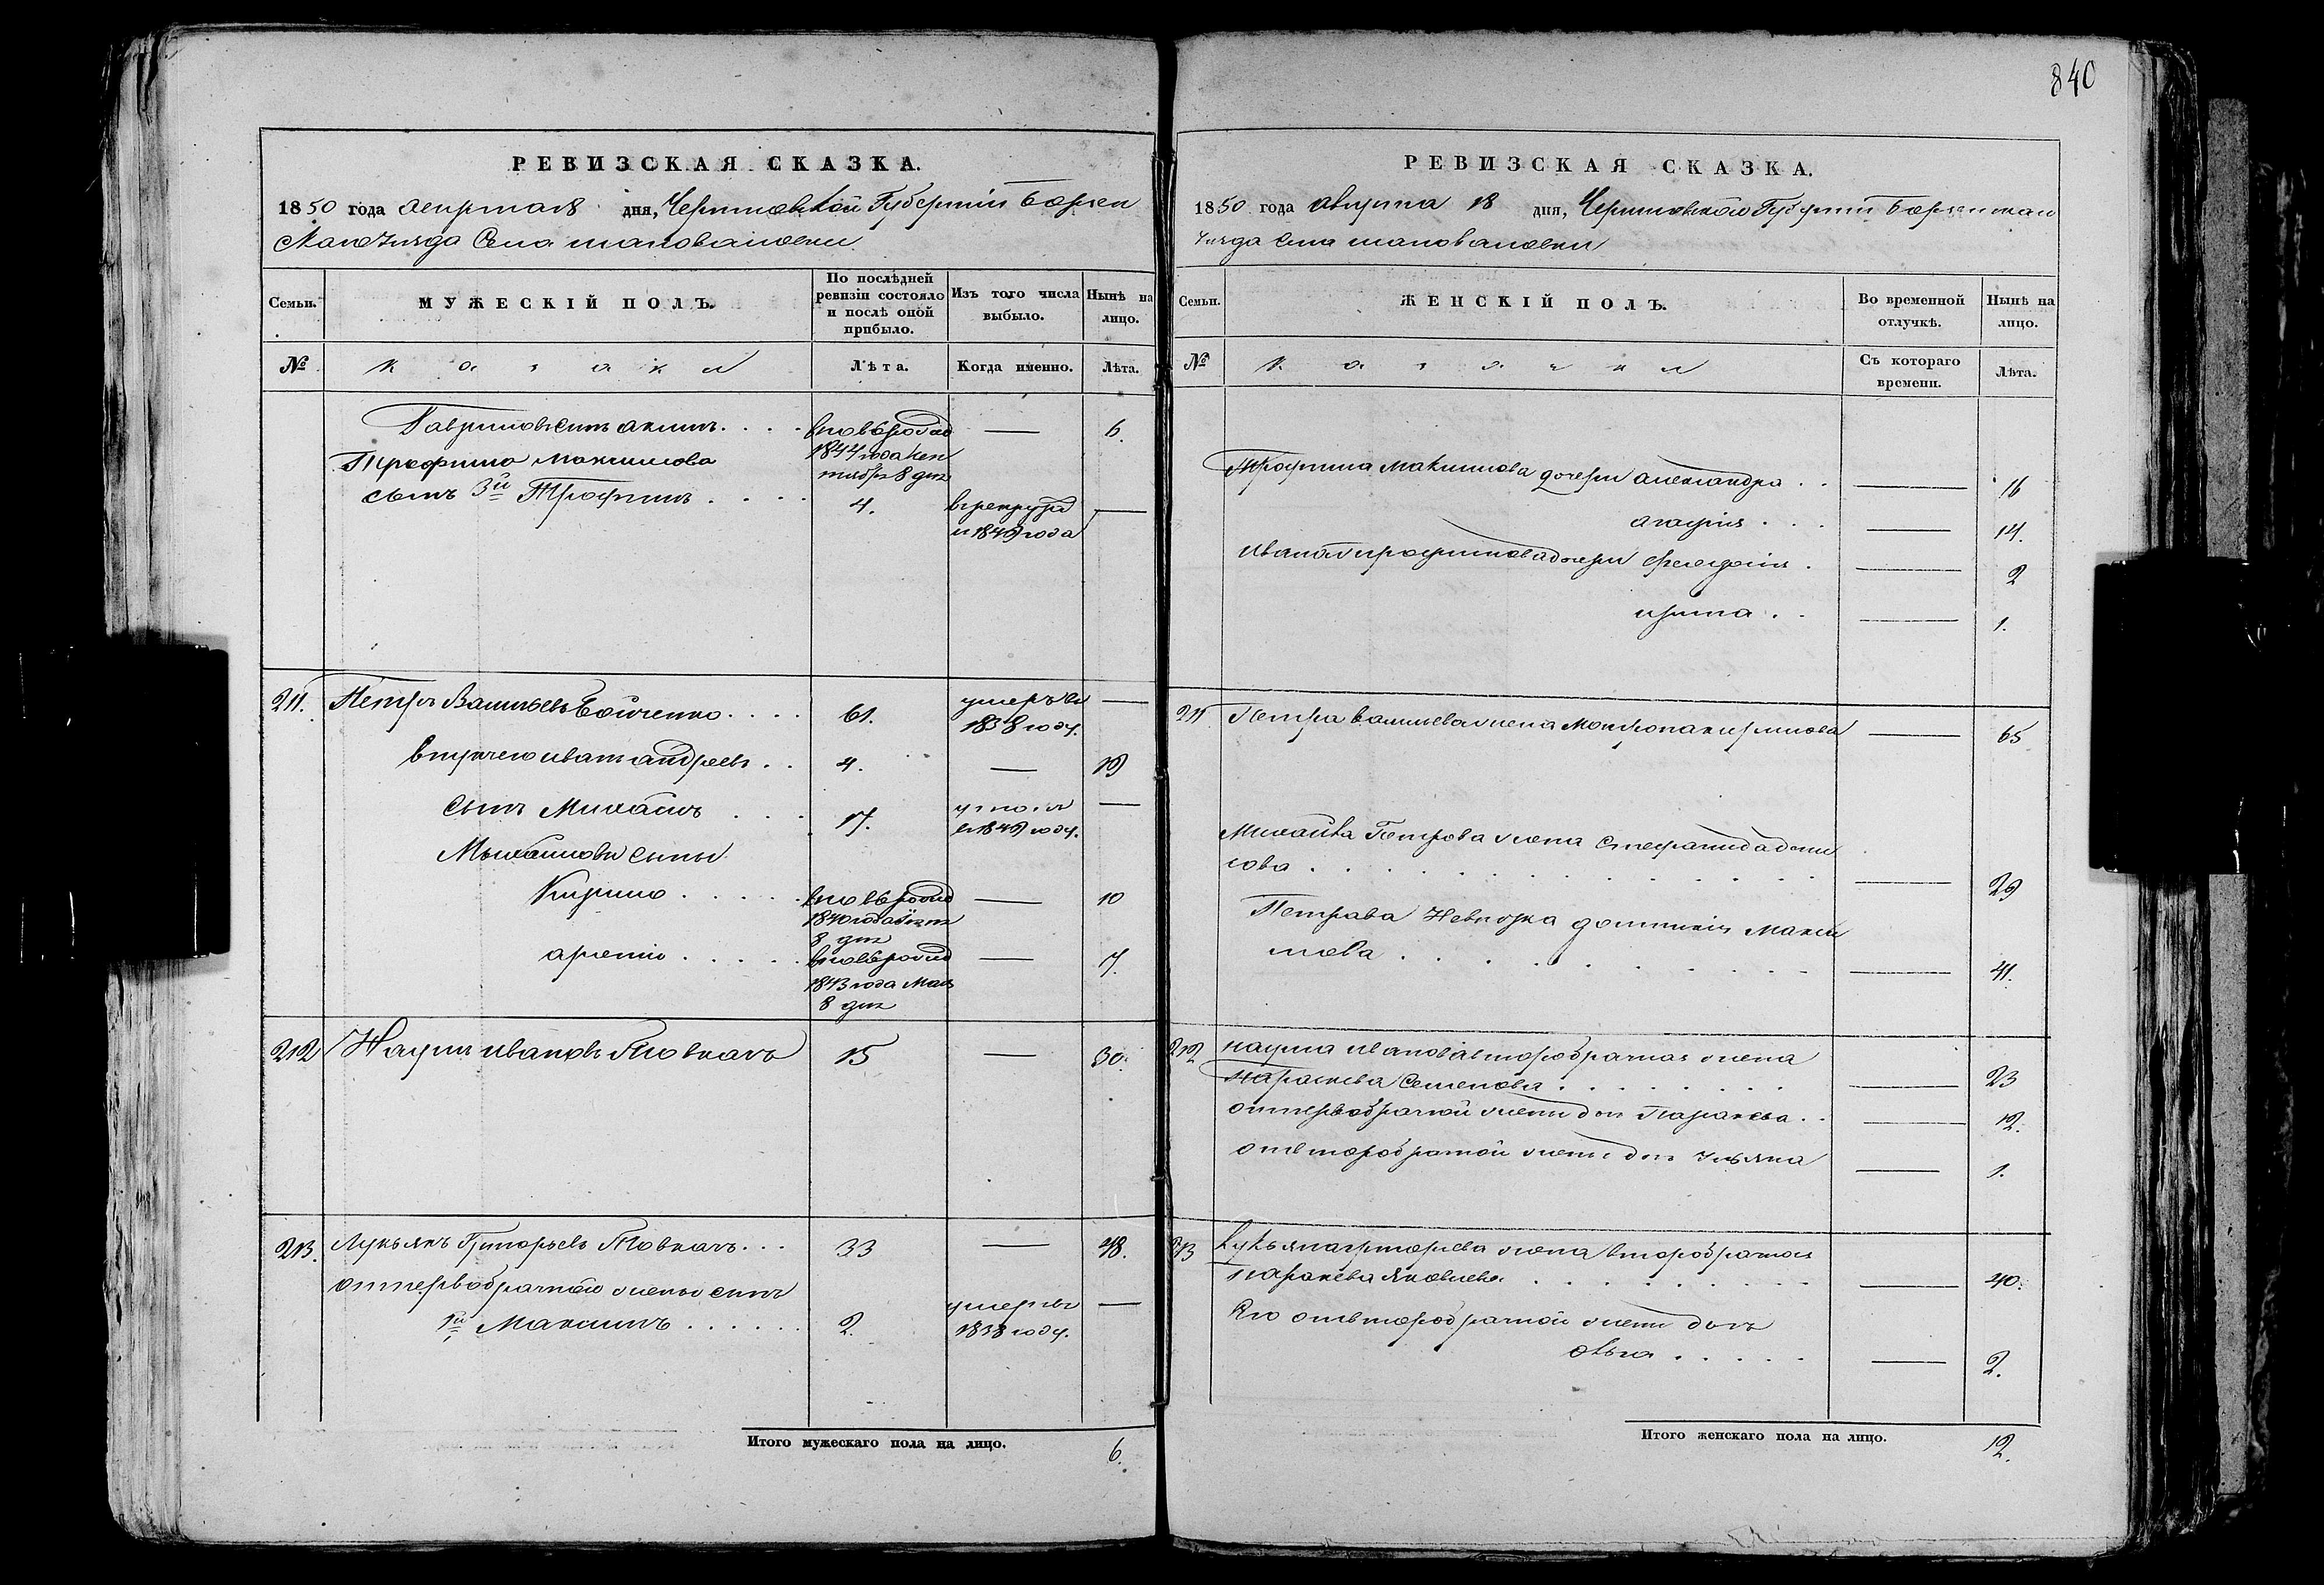 840
РЕВИЗСКАЯ СКАЗКА.
1850 года августа 18 дня, Черниговской Губерніи Борзен
скаго Уезда Села шаповаловки
Семьи.
МУЖЕСКІЙ ПОЛЪ.
По послѣдней ревизіи состояло и послѣ оной прибыло.
Изъ того числа выбыло.
Нынѣ на лицо.
№
казаки
Лѣта.
Когда именно.
Лѣта.
Гавриловъ сынъ акимъ.... вновь рожд — 6.
Трофима максимова 1844 года сен
тября 8 дня
сынъ 3й Трофимъ.... 4. в рекруты —
и 1849 года
211. Петръ Васильевъ Бойченко.... 61. умеръ въ —
1838 году.
внукъ его иванъ андреевъ.. 4. — 19
сынъ Михаилъ... 17. —
въ 1849 году.
Михайловы сыны
Кирило..... вновь рожд — 10
1840 года
8 дня
арсеній..... вновь рожд — 7.
1843 года Мая
8 дня
212 Наумъ ивановъ Товкачъ 15 — 30.
213. Лукьянъ Григорьевъ Товкачъ... 33 — 48.
отпервобрачной жены сынъ
1й Максимъ...... 2. умеръ въ —
1838 году.
Итого мужескаго пола на лицо. 6.
РЕВИЗСКАЯ СКАЗКА.
1850 года августа 18 дня, Черниговской Губерніи Борзенскаго
Уезда Села шаповаловки
Семьи.
ЖЕНСКІЙ ПОЛЪ.
Во временной отлучкѣ.
Нынѣ на лицо.
№
казачки
Съ котораго времени.
Лѣта.
Трофима Максимова дочери александра.. — 16
агафія... — 14.
ивана трофимова дочери феодосія. — 2
ирина.. — 1.
211. Петра васильева жена Мотрона кирилова — 65
Михайла Петрова жена Стефанида дани
лова — 29
Петрава Невѣстка домникія Макси
мова — 41.
212 наума иванова второбрачная жена
Параскева Семенова — 23
отпервобрачной жены дочь Параскева.. — 12.
отвторобрачной жены дочь Ульяна — 1.
213 Лукьяна григорьева жена второбрачная
параскева яковлева — 40.
Его отвторобрачной жены дочь
ольга..... — 2.
Итого женскаго пола на лицо. 12.